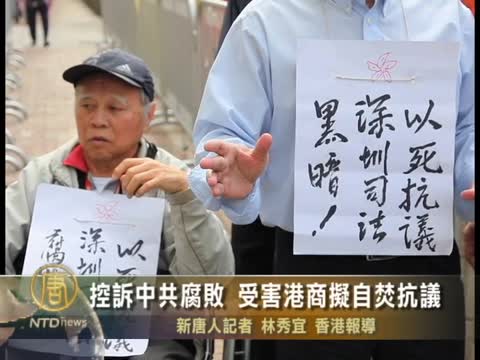 以死抗議
深圳司法
黑暗！
以死
深圳
腐
控訴中共腐敗 受害港商擬自焚抗議
新唐人記者 林秀宜 香港報導
唐
NTDnews